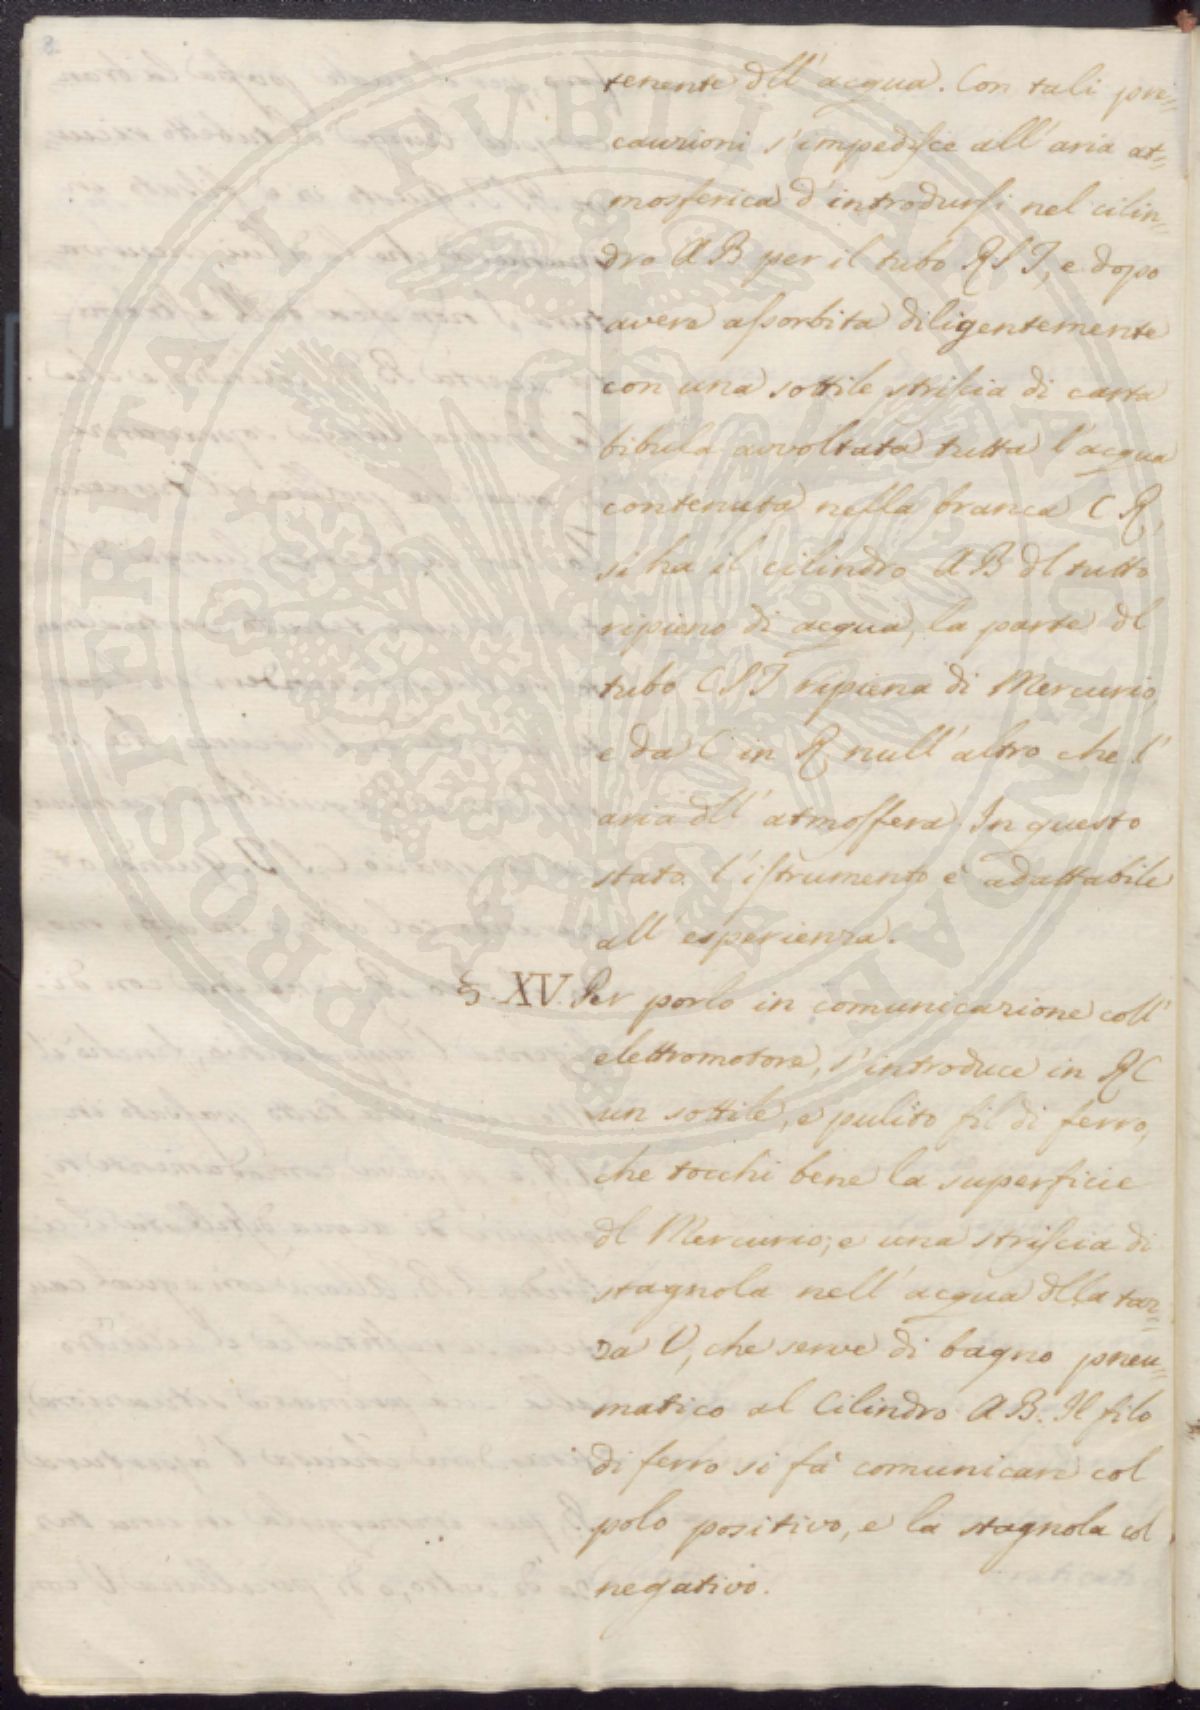 8.
tenente dll' acqua. Con tali pre=
cauzioni s'impedisce all' aria at=
mosferica d' introdursi nel cilin=
dro AB per il tubo RST, e dopo
avere assorbita diligentemente
con una sottile striscia di carta
bibula avvoltata tutta l'acqua
contenuta nella branca CR,
si ha il cilindro AB dl tutto
ripieno di acqua, la parte dl
tubo CST ripiena di Mercurio,
e da C in R null' altro che l'
aria dll' atmosfera. In questo
stato l'istrumento è adattabile
all' esperienza.
§. XV. Per porlo in comunicazione coll'
elettromotore, s'introduce in RC
un sottile, e pulito fil di ferro,
che tocchi bene la superficie
dl Mercurio; e una striscia di
stagnola nell' acqua dlla taz=
za V, che serve di bagno pneu=
matico al Cilindro AB. Il filo
di ferro si fà comunicare col
polo positivo, e la stagnola col
negativo.
PROSPERITATI PVBLICAE AVGENDAE